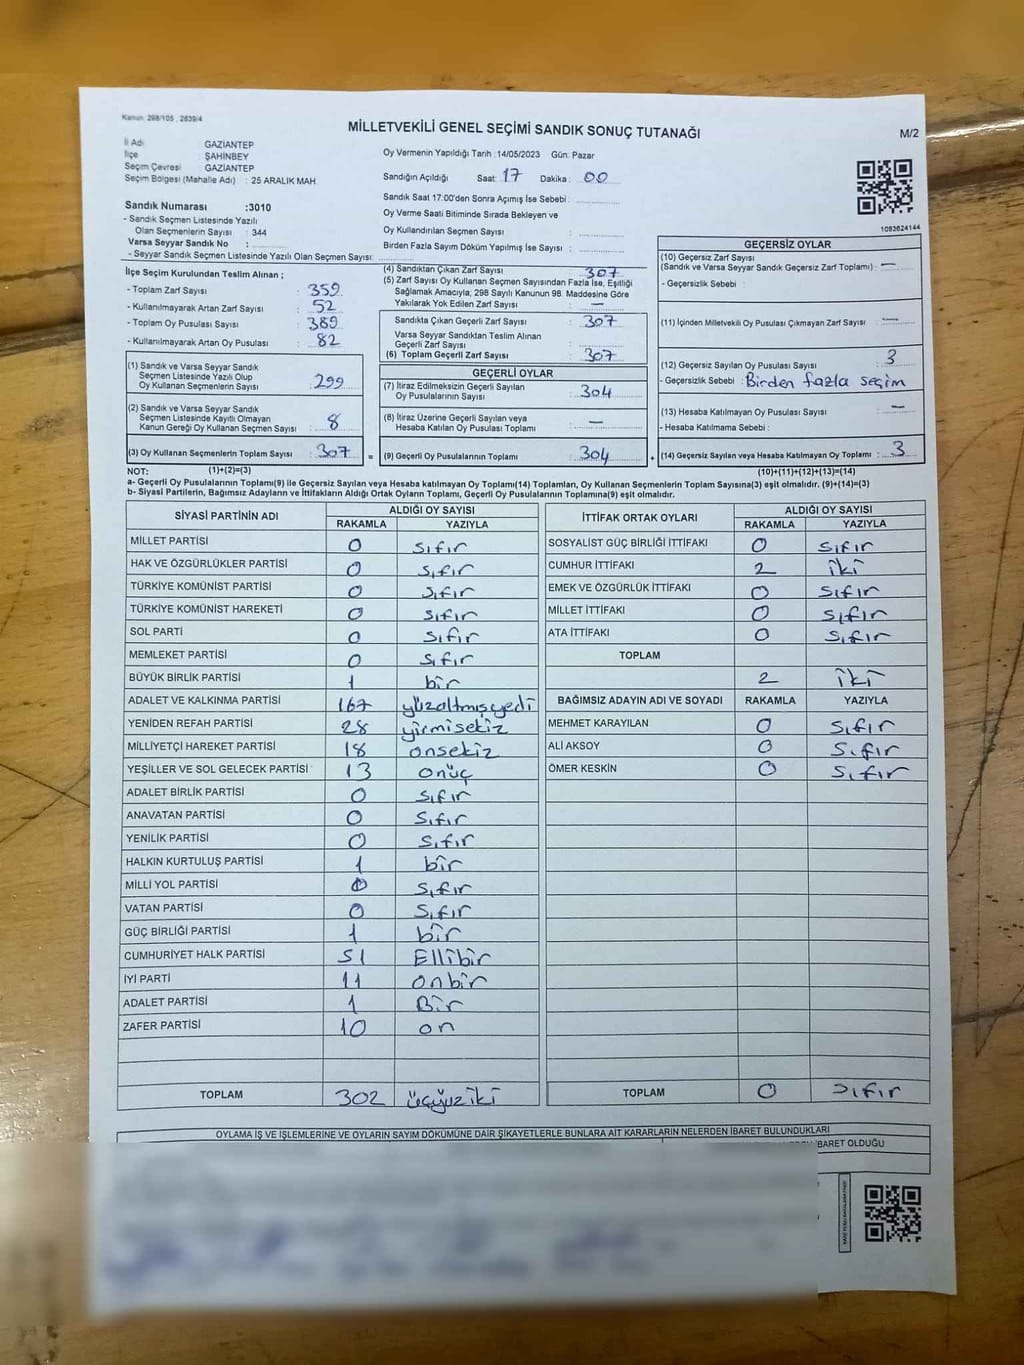 Kanun: 298/105 , 2839/4
MİLLETVEKİLİ GENEL SEÇİMİ SANDIK SONUÇ TUTANAĞI
M/2
İl Adı : GAZİANTEP
İlçe : ŞAHİNBEY
Seçim Çevresi : GAZİANTEP
Seçim Bölgesi (Mahalle Adı) : 25 ARALIK MAH
Oy Vermenin Yapıldığı Tarih :14/05/2023 Gün: Pazar
Sandığın Açıldığı Saat: 17 Dakika : 00
Sandık Saat 17:00'den Sonra Açımış İse Sebebi :
Oy Verme Saati Bitiminde Sırada Bekleyen ve
Oy Kullandırılan Seçmen Sayısı :
Birden Fazla Sayım Döküm Yapılmış İse Sayısı :
1083624144
Sandık Numarası :3010
- Sandık Seçmen Listesinde Yazılı
Olan Seçmenlerin Sayısı : 344
Varsa Seyyar Sandık No :
- Seyyar Seçmen Listesinde Yazılı Olan Seçmen Sayısı:
İlçe Seçim Kurulundan Teslim Alınan ;
- Toplam Zarf Sayısı : 359
- Kullanılmayarak Artan Zarf Sayısı : 52
- Toplam Oy Pusulası Sayısı : 389
- Kullanılmayarak Artan Oy Pusulası : 82
(1) Sandık ve Varsa Seyyar Sandık
Seçmen Listesinde Yazılı Olup
Oy Kullanan Seçmenlerin Sayısı : 299
(2) Sandık ve Varsa Seyyar Sandık
Seçmen Listesinde Kayıtlı Olmayan
Kanun Gereği Oy Kullanan Seçmen Sayısı : 8
(3) Oy Kullanan Seçmenlerin Toplam Sayısı : 307 =
(4) Sandıktan Çıkan Zarf Sayısı : 307
(5) Zarf Sayısı Oy Kullanan Seçmen Sayısından Fazla İse, Eşitliği
Sağlamak Amacıyla; 298 Sayılı Kanunun 98. Maddesine Göre
Yakılarak Yok Edilen Zarf Sayısı : —
Sandıkta Çıkan Geçerli Zarf Sayısı : 307
Varsa Seyyar Sandıktan Teslim Alınan
Geçerli Zarf Sayısı :
(6) Toplam Geçerli Zarf Sayısı : 307
GEÇERLİ OYLAR
(7) İtiraz Edilmeksizin Geçerli Sayılan
Oy Pusulalarının Sayısı : 304
(8) İtiraz Üzerine Geçerli Sayılan veya
Hesaba Katılan Oy Pusulası Toplamı : —
(9) Geçerli Oy Pusulası Toplamı : 304 +
GEÇERSİZ OYLAR
(10) Geçersiz Zarf Sayısı
(Sandık ve Varsa Seyyar Sandık Geçersiz Zarf Toplamı) : —
- Geçersizlik Sebebi :
(11) İçinden Milletvekili Oy Pusulası Çıkmayan Zarf Sayısı : —
(12) Geçersiz Sayılan Oy Pusulası Sayısı : 3
- Geçersizlik Sebebi : Birden fazla seçim
(13) Hesaba Katılmayan Oy Pusulası Sayısı : —
- Hesaba Katılmama Sebebi :
(14) Geçersiz Sayılan veya Hesaba Katılmayan Oy Toplamı : 3
NOT: (1)+(2)=(3) (10)+(11)+(12)+(13)=(14)
a- Geçerli Oy Pusulalarının Toplamı(9) ile Geçersiz Sayılan veya Hesaba katılmayan Oy Toplamı(14) Toplamları, Oy Kullanan Seçmenlerin Toplam Sayısına(3) eşit olmalıdır. (9)+(14)=(3)
b- Siyasi Partilerin, Bağımsız Adayların ve İttifakların Aldığı Ortak Oyların Toplamı, Geçerli Oy Pusulalarının Toplamına(9) eşit olmalıdır.
SİYASİ PARTİNİN ADI ALDIĞI OY SAYISI
RAKAMLA YAZIYLA
MİLLET PARTİSİ 0 sıfır
HAK VE ÖZGÜRLÜKLER PARTİSİ 0 sıfır
TÜRKİYE KOMÜNİST PARTİSİ 0 sıfır
TÜRKİYE KOMÜNİST HAREKETİ 0 sıfır
SOL PARTİ 0 sıfır
MEMLEKET PARTİSİ 0 sıfır
BÜYÜK BİRLİK PARTİSİ 1 bir
ADALET VE KALKINMA PARTİSİ 167 yüzaltmışyedi
YENİDEN REFAH PARTİSİ 28 yirmisekiz
MİLLİYETÇİ HAREKET PARTİSİ 18 onsekiz
YEŞİLLER VE SOL GELECEK PARTİSİ 13 onüç
ADALET BİRLİK PARTİSİ 0 sıfır
ANAVATAN PARTİSİ 0 sıfır
YENİLİK PARTİSİ 0 sıfır
HALKIN KURTULUŞ PARTİSİ 1 bir
MİLLİ YOL PARTİSİ 0 sıfır
VATAN PARTİSİ 0 sıfır
GÜÇ BİRLİĞİ PARTİSİ 1 bir
CUMHURİYET HALK PARTİSİ 51 Ellibir
İYİ PARTİ 11 onbir
ADALET PARTİSİ 1 Bir
ZAFER PARTİSİ 10 on
TOPLAM 302 üçyüziki
İTTİFAK ORTAK OYLARI ALDIĞI OY SAYISI
RAKAMLA YAZIYLA
SOSYALİST GÜÇ BİRLİĞİ İTTİFAKI 0 sıfır
CUMHUR İTTİFAKI 2 iki
EMEK VE ÖZGÜRLÜK İTTİFAKI 0 sıfır
MİLLET İTTİFAKI 0 sıfır
ATA İTTİFAKI 0 sıfır
TOPLAM
2 iki
BAĞIMSIZ ADAYIN ADI VE SOYADI RAKAMLA YAZIYLA
MEHMET KARAYILAN 0 sıfır
ALİ AKSOY 0 sıfır
ÖMER KESKİN 0 sıfır
TOPLAM 0 sıfır
OYLAMA İŞ VE İŞLEMLERİNE VE OYLARIN SAYIM DÖKÜMÜNE DAİR ŞİKAYETLERLE BUNLARA AİT KARARLARIN NELERDEN İBARET BULUNDUKLARI
İBARET OLDUĞU